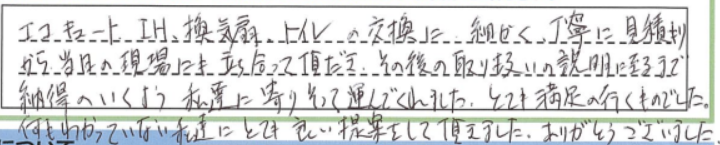 エコキュート、IH、換気扇、トイレの交換に、細かく、丁寧に見積り
から当日の現場にも立ち合って頂だき、その後の取り扱いの説明に至るまで
納得のいくよう私達に寄りそって運んでくれました。とても満足の行くものでした。
何もわかっていない私達にとても良い提案をして頂きました。ありがとうございました